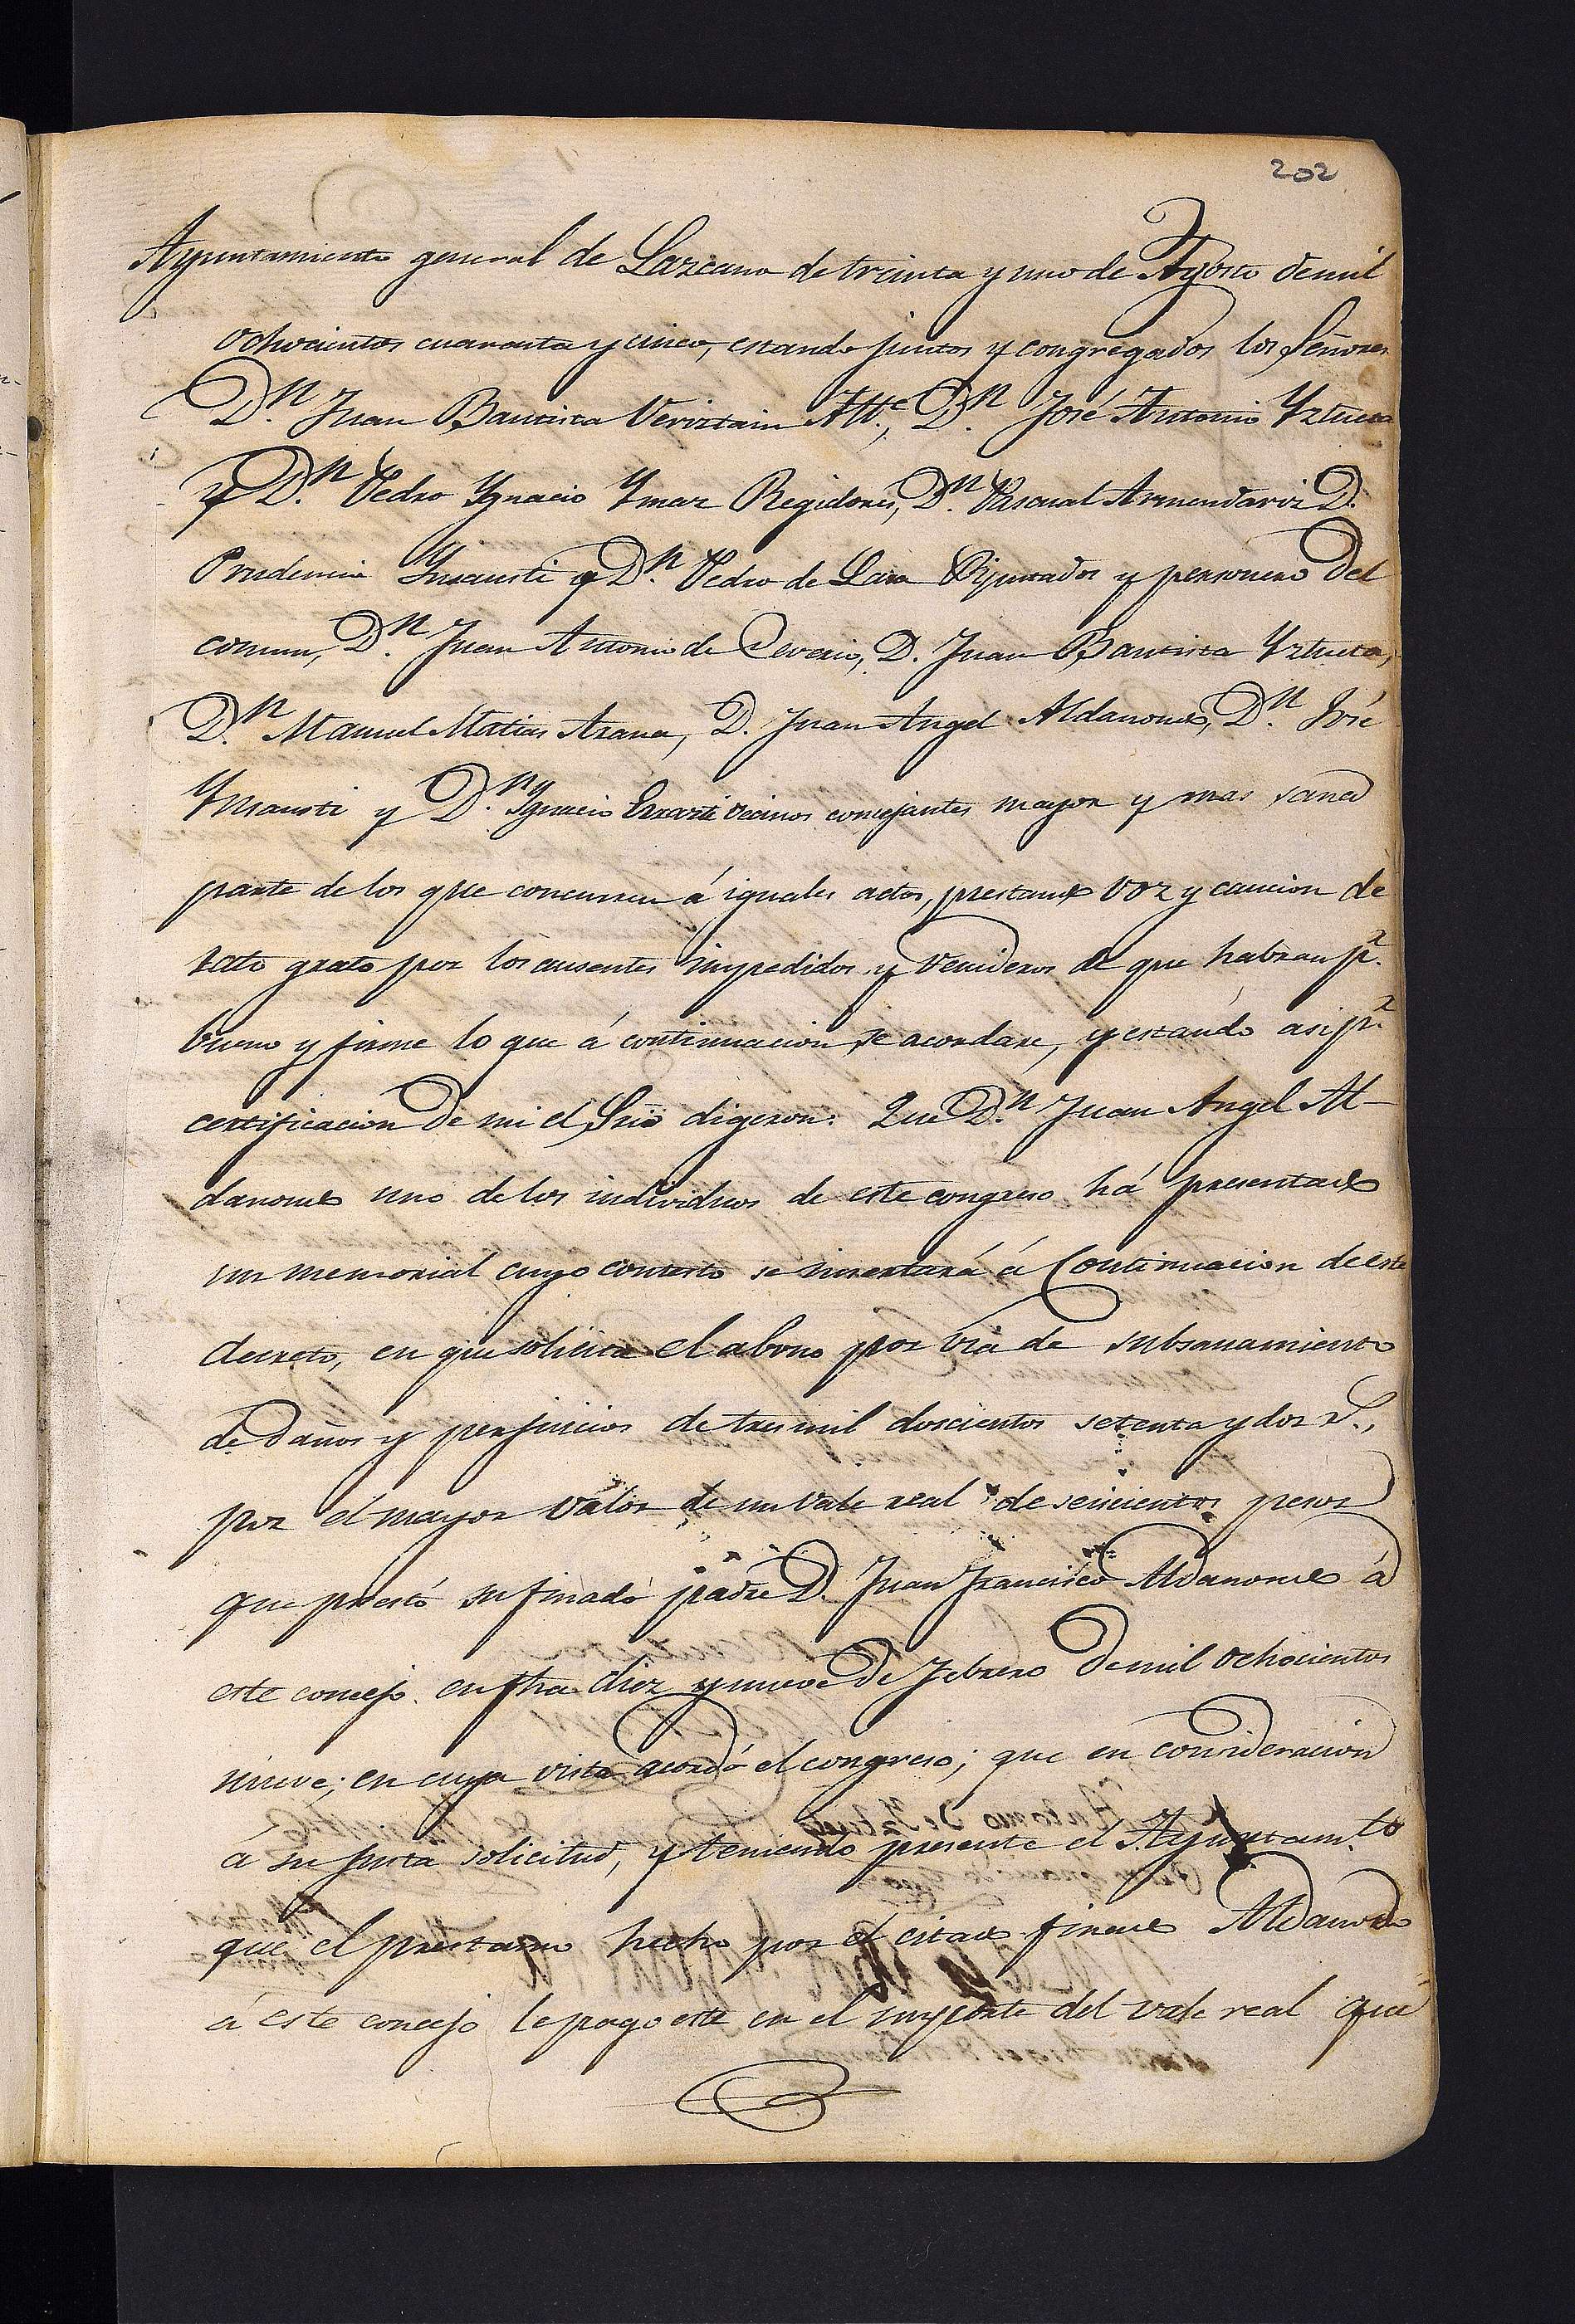 202
Ayuntamiento general de Lazcano de treinta y uno de Agosto de mil
ochocientos cuarenta y cinco, estando juntos y congregados los Señores
D.n Juan Bautista Veriztain Al.e, D.n José Antonio Yztueta
y D.n Pedro Ygnacio Ymaz Regidores, D.n Pascual Armendariz D.
Prudencio Ynsausti y D.n Pedro de Lasa Diputados y personero del
comun, D.n Juan Antonio de D. Juan Bautista Yztueta,
D.n Manuel Matias Arana, D. Juan Angel Aldanondo, D.n José
Ynsausti y D.n Ygnacio vecinos concejantes mayor y mas sana
parte de los que concurren á iguales actos, prestando voz y caucion de
rato grato por los ausentes impedidos y venideros de que habran p.r
bueno y firme lo que á continuacion se acordare, y estando asi p.r
certificacion de mi el Srio digeron: Que D.n Juan Angel Al-
danondo uno de los individuos de este congreso há presentado
un memorial cuyo contesto se insertará á Continuacion de este
decreto, en que solicita el abono por via de subsanamiento
de daños y perjuicios de tres mil doscientos setenta y dos r.s,
por el mayor valor de un vale real de seiscientos pesos
que prestó su finado padre D. Juan Francisco Aldanondo á
este concejo en fha diez y nueve de Febrero de mil ochocientos
nueve; en cuya vista acordó el congreso; que en consideracion
á su justa solicitud, y teniendo presente el Ayuntam.to
que el prestamo hecho por el citado finado Aldanondo
á este concejo le pago este en el importe del vale real que